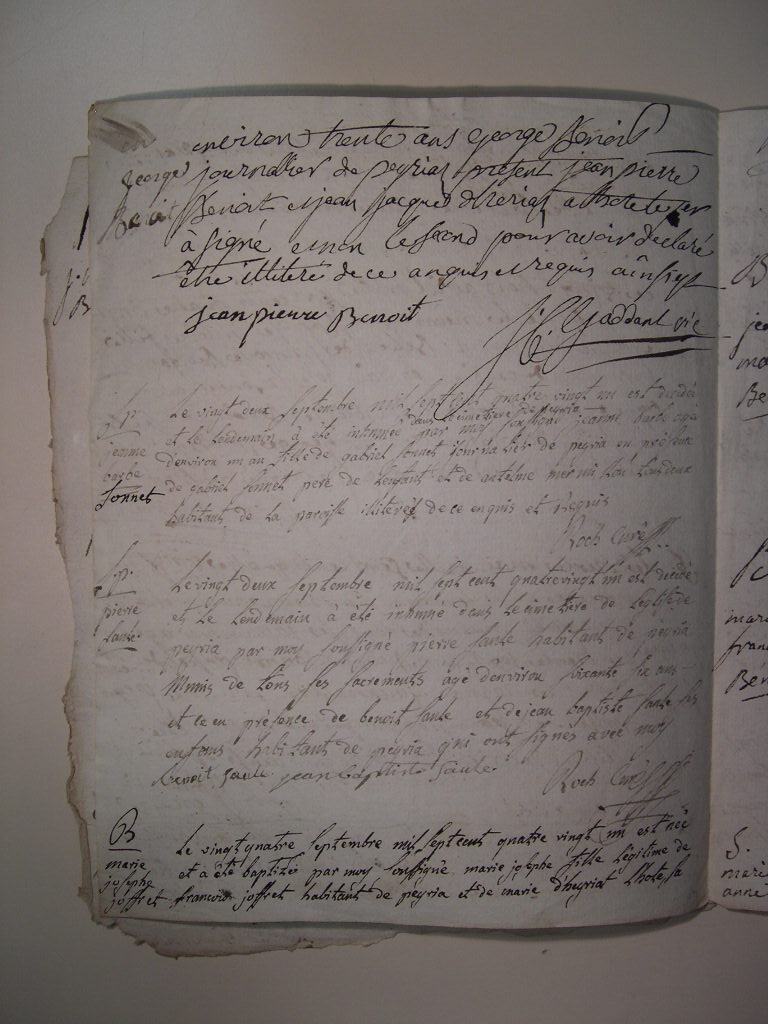 environ trente ans george Benoit
george journallier de peyriat présent jean pierre
Benoit Benoit et jean Jacques d'heriat
à signé et non le second pour avoir declaré
être illiteré de ce anquis et requis ainsi
jean pierre Benoit
J. C. Gaddant vic
Sp. Le vingt deux Septembre mil sept cent quatre vingt un est decédée
dans le cimetiere de peyria
jeanne et le lendemain à été inhumée par moy soussigné jeanne barbe agée
barbe d'environ un an fille de gabriel sonnet journalier de peyria en présence
Sonnet de gabriel sonnet pere de l'enfant et de antelme mermillon tous deux
habitant de la paroisse illiterés de ce enquis et requis
Roch Curé
Sp. Le vingt deux Septembre mil sept cent quatre vingt un est decédé
pierre et le lendemain à été inhumé dans le cimetiere de l'eglise de
saule peyria par moy soussigné pierre saule habitant de peyria
Munis de tous ses sacrements agé d'environ soixante six ans
et ce en présence de benoit saule et de jean baptiste saule ses
enfans habitant de peyria qui ont signés avec moy
benoit saule jean baptiste saule
Roch Curé
B Le vingt quatre Septembre mil sept cent quatre vingt un est née
marie et a été baptisée par moy soussigné marie josephe fille légitime de
josephe
joffret francois joffret habitant de peyria et de marie d'heyriat l'hote sa